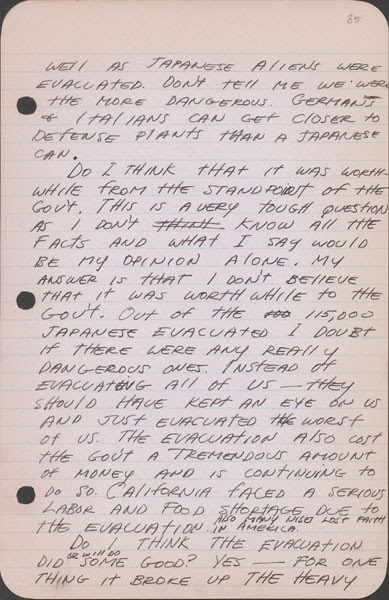 85
WELL AS JAPANESE ALIENS WERE
EVACUATED. DON'T TELL ME WE WERE
THE MORE DANGEROUS. GERMANS
& ITALIANS CAN GET CLOSER TO
DEFENSE PLANTS THAN A JAPANESE
CAN.
DO I THINK THAT IT WAS WORTH
WHILE FROM THE STANDPOINT OF THE
GOV'T. THIS IS A VERY TOUGH QUESTION
AS I DON'T THINK KNOW ALL THE
FACTS AND WHAT I SAY WOULD
BE MY OPINION ALONE. MY
ANSWER IS THAT I DON'T BELIEVE
THAT IT WAS WORTH WHILE TO THE
GOV'T. OUT OF THE 115,000
JAPANESE EVACUATED I DOUBT
IF THERE WERE ANY REALLY
DANGEROUS ONES. INSTEAD OF
EVACUATING ALL OF US — THEY
SHOULD HAVE KEPT AN EYE ON US
AND JUST EVACUATED THE WORST
OF US. THE EVACUATION ALSO COST
THE GOV'T A TREMENDOUS AMOUNT
OF MONEY AND IS CONTINUING TO
DO SO. CALIFORNIA FACED A SERIOUS
LABOR AND FOOD SHORTAGE DUE TO
THE EVACUATION. ALSO MANY NISEI LOST FAITH
IN AMERICA.
DO I THINK THE EVACUATION
DID OR WILL DO SOME GOOD? YES — FOR ONE
THING IT BROKE UP THE HEAVY